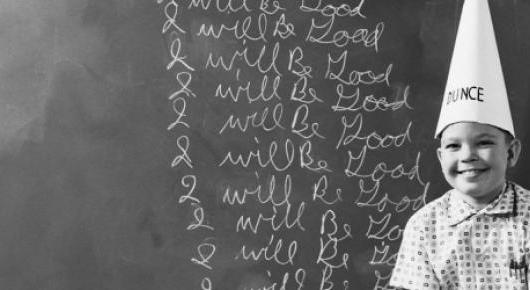 I will Be Good
I will Be Good
I will Be Good
I will Be Good
I will Be Good
I will Be Good
I will Be Good
I will Be Goo
I will Be Go
I will Be
DUNCE